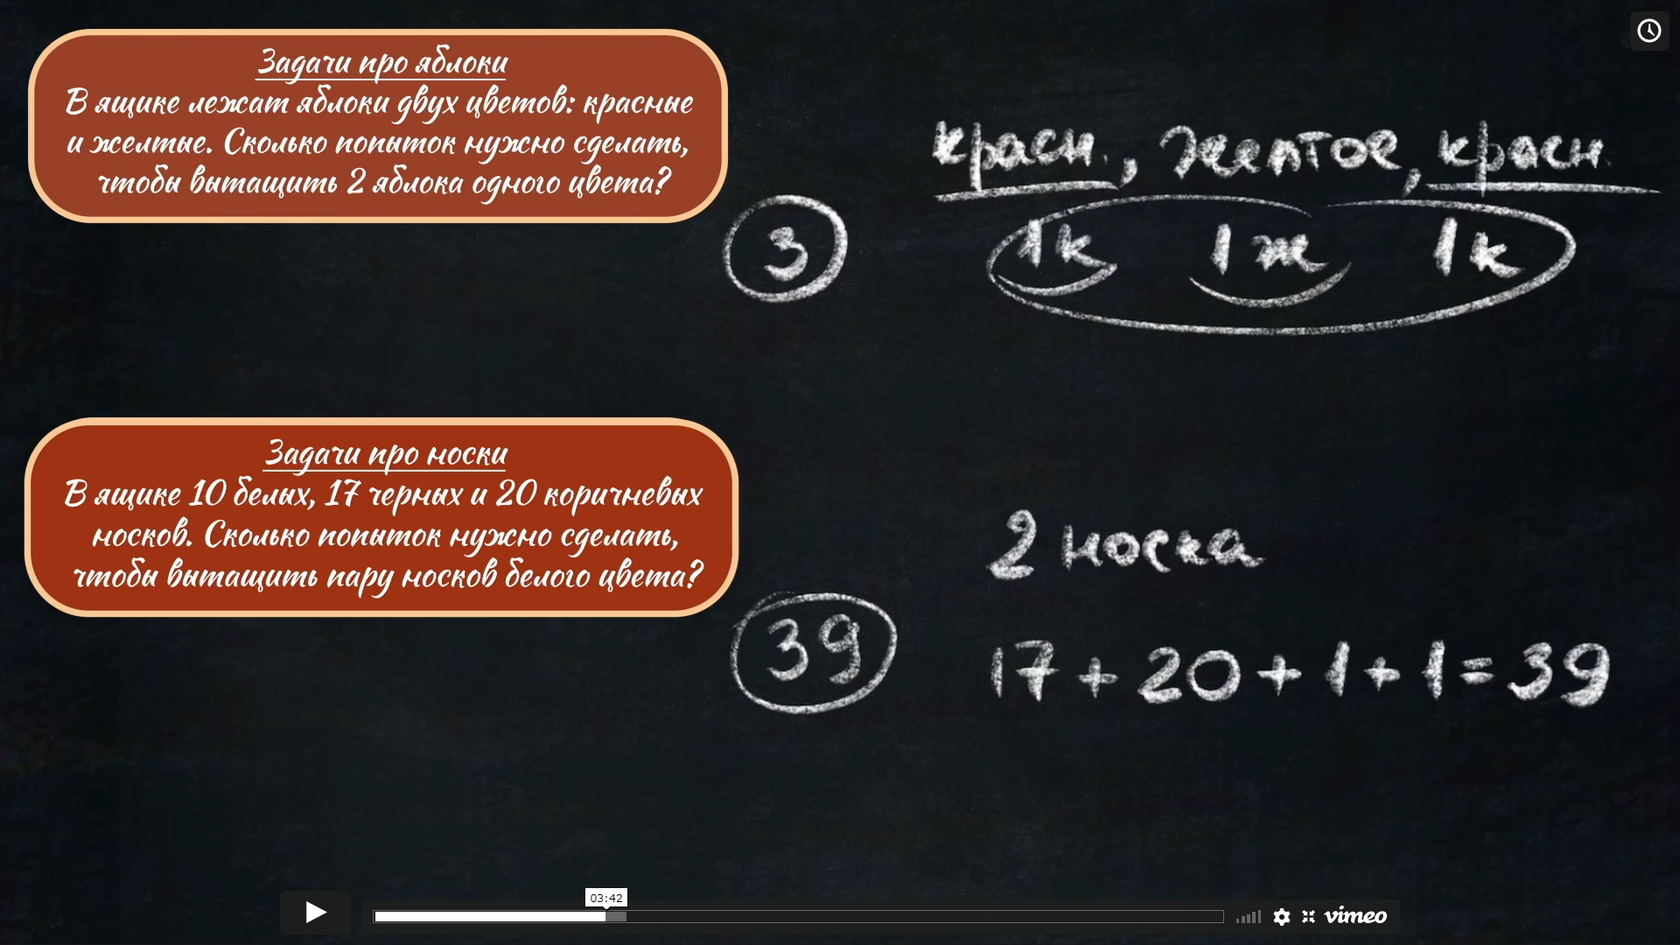 Задачи про яблоки
В ящике лежат яблоки двух цветов: красные
и желтые. Сколько попыток нужно сделать,
чтобы вытащить 2 яблока одного цвета?
красн., желтое, красн.
3
1к 1ж 1к
Задачи про носки
В ящике 10 белых, 17 черных и 20 коричневых
носков. Сколько попыток нужно сделать,
чтобы вытащить пару носков белого цвета?
2 носка
39
17+20+1+1=39
03:42
vimeo